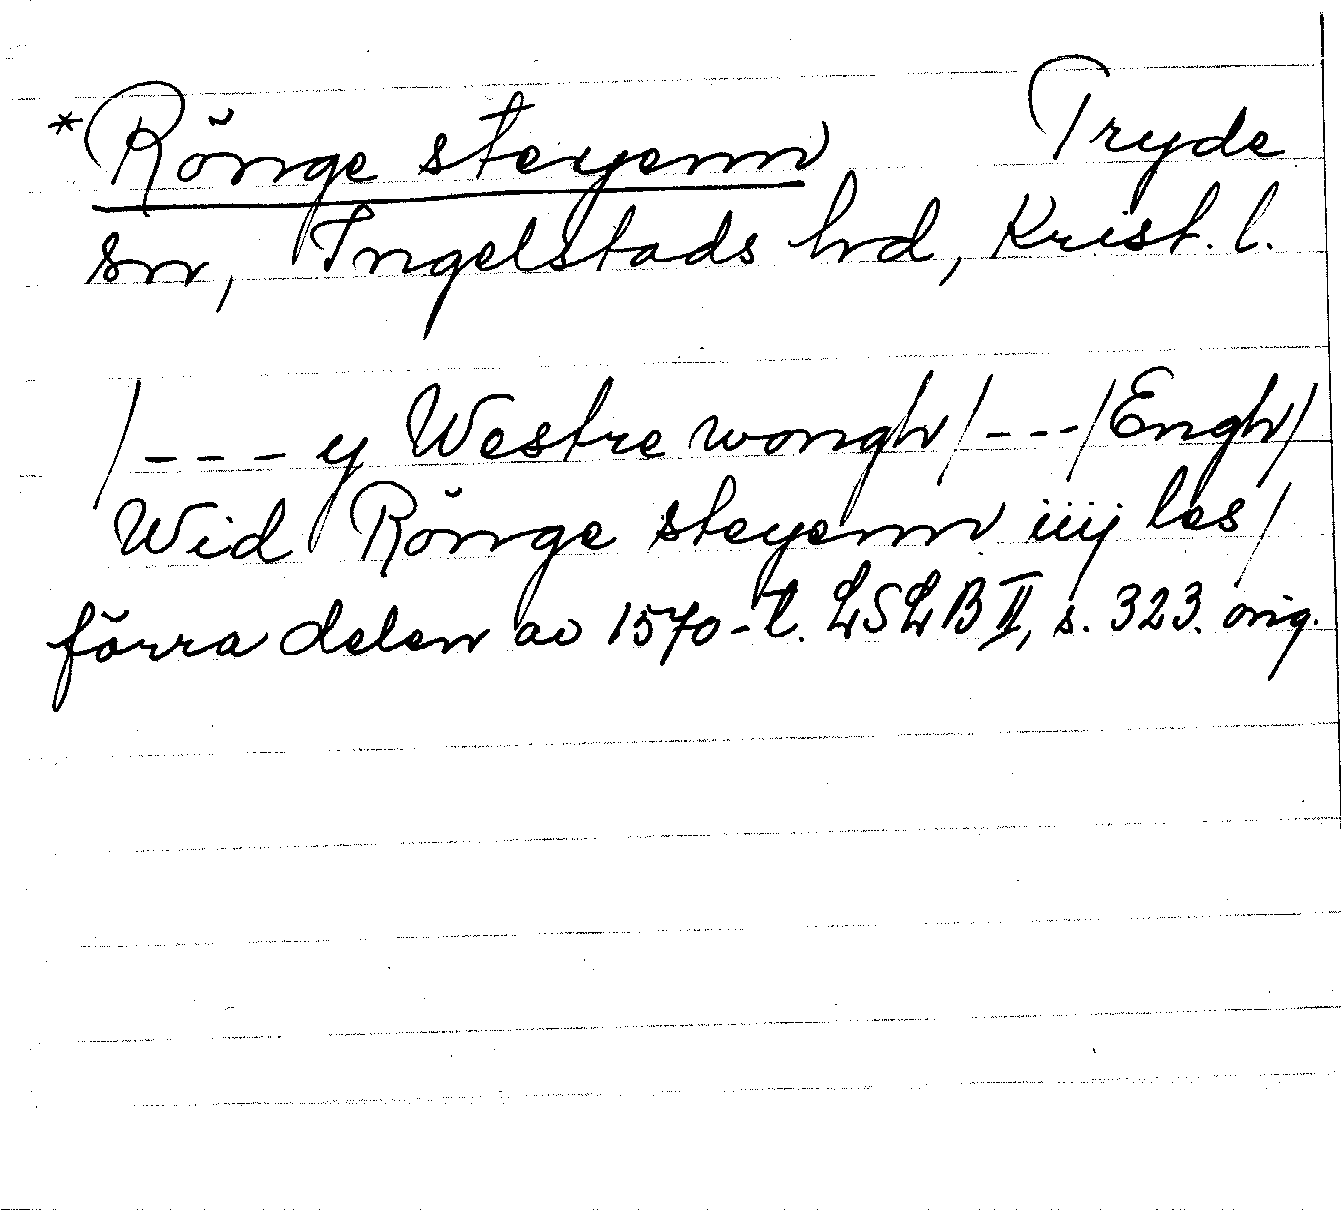 *Rönge steyenn Tryde
sn, Ingelstads hd, Krist. l.
/--- y Westre wongh/---/Engh/
Wid Rönge steyenn iiij les/
förra delen av 1570-t. LSLB II, s. 323. orig.